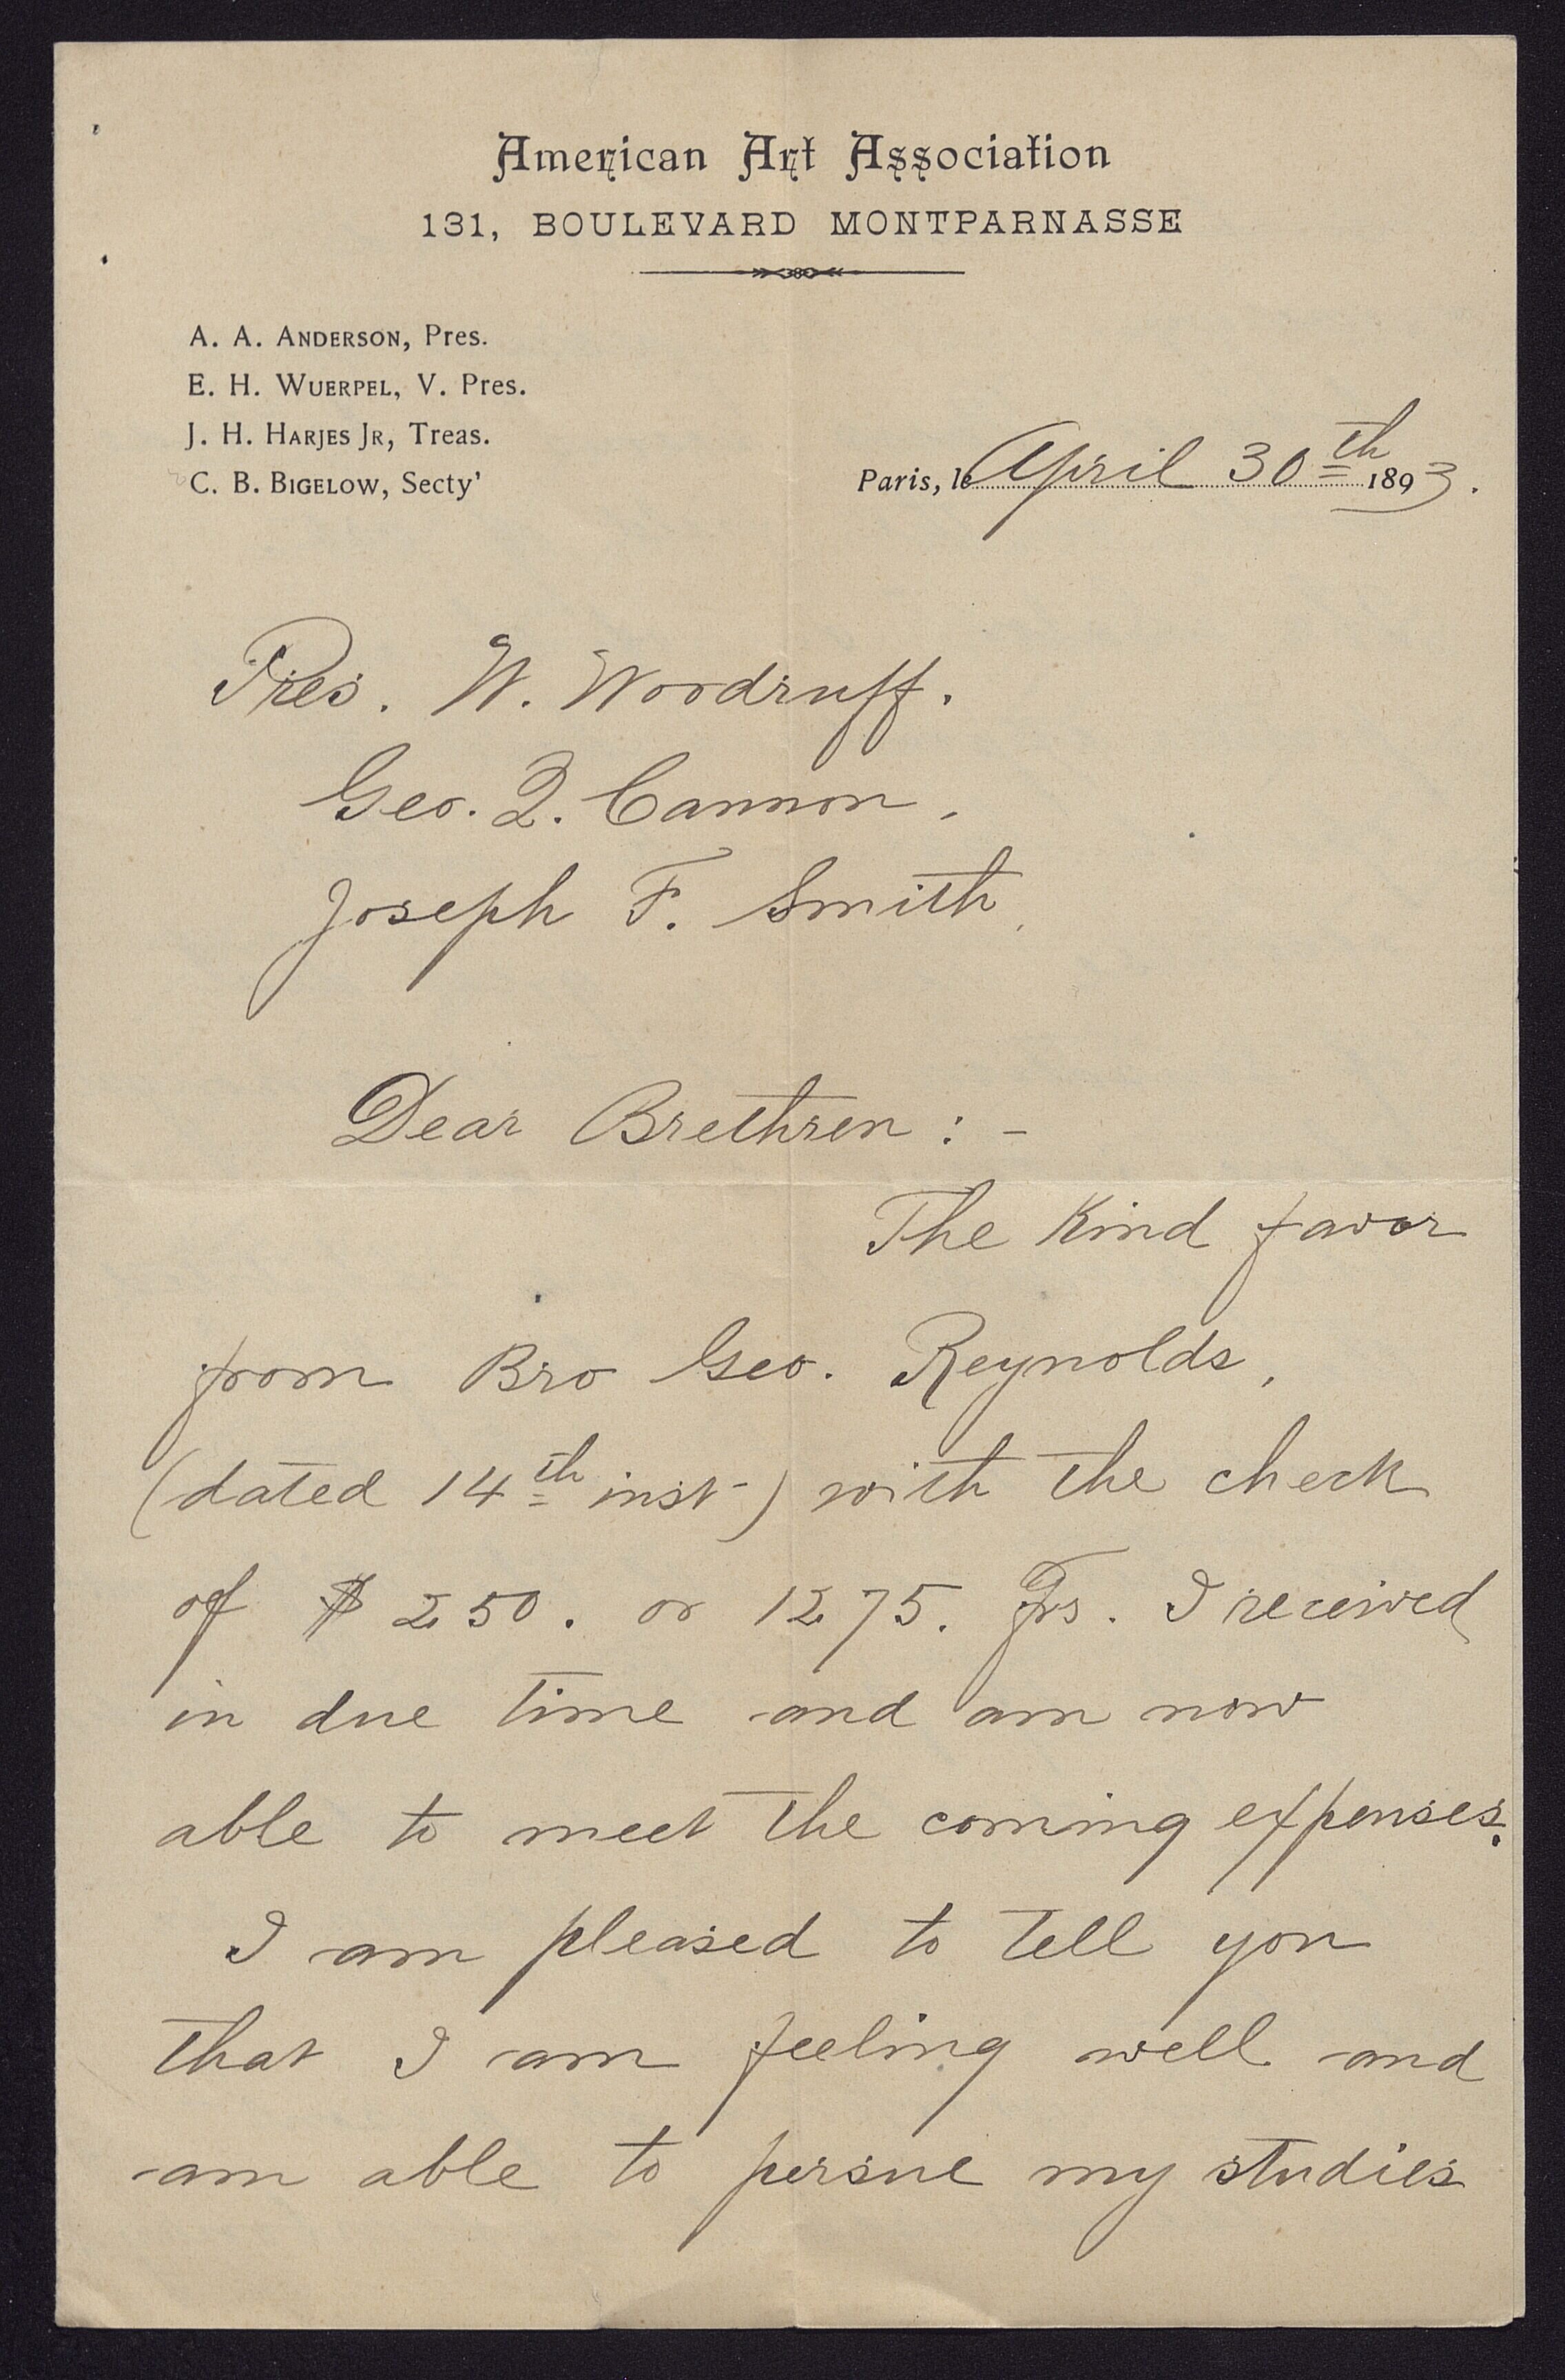 American Art Association
131, BOULEVARD MONTPARNASSE
A. A. ANDERSON, Pres.
E. H. WUERPEL, V. Pres.
J. H. HARJES JR, Treas.
C. B. BIGELOW, Secty'
Paris, le April 30th 1893.
Pres. W. Woodruff.
Geo. Q. Cannon,
Joseph F. Smith,
Dear Brethren : -
The Kind favor
from Bro Geo. Reynolds,
(dated 14th inst-) with the check
of $ 250. or 1275. Frs. I received
in due time and am now
able to meet the coming expenses.
I am pleased to tell you
that I am feeling well and
am able to persue my studies